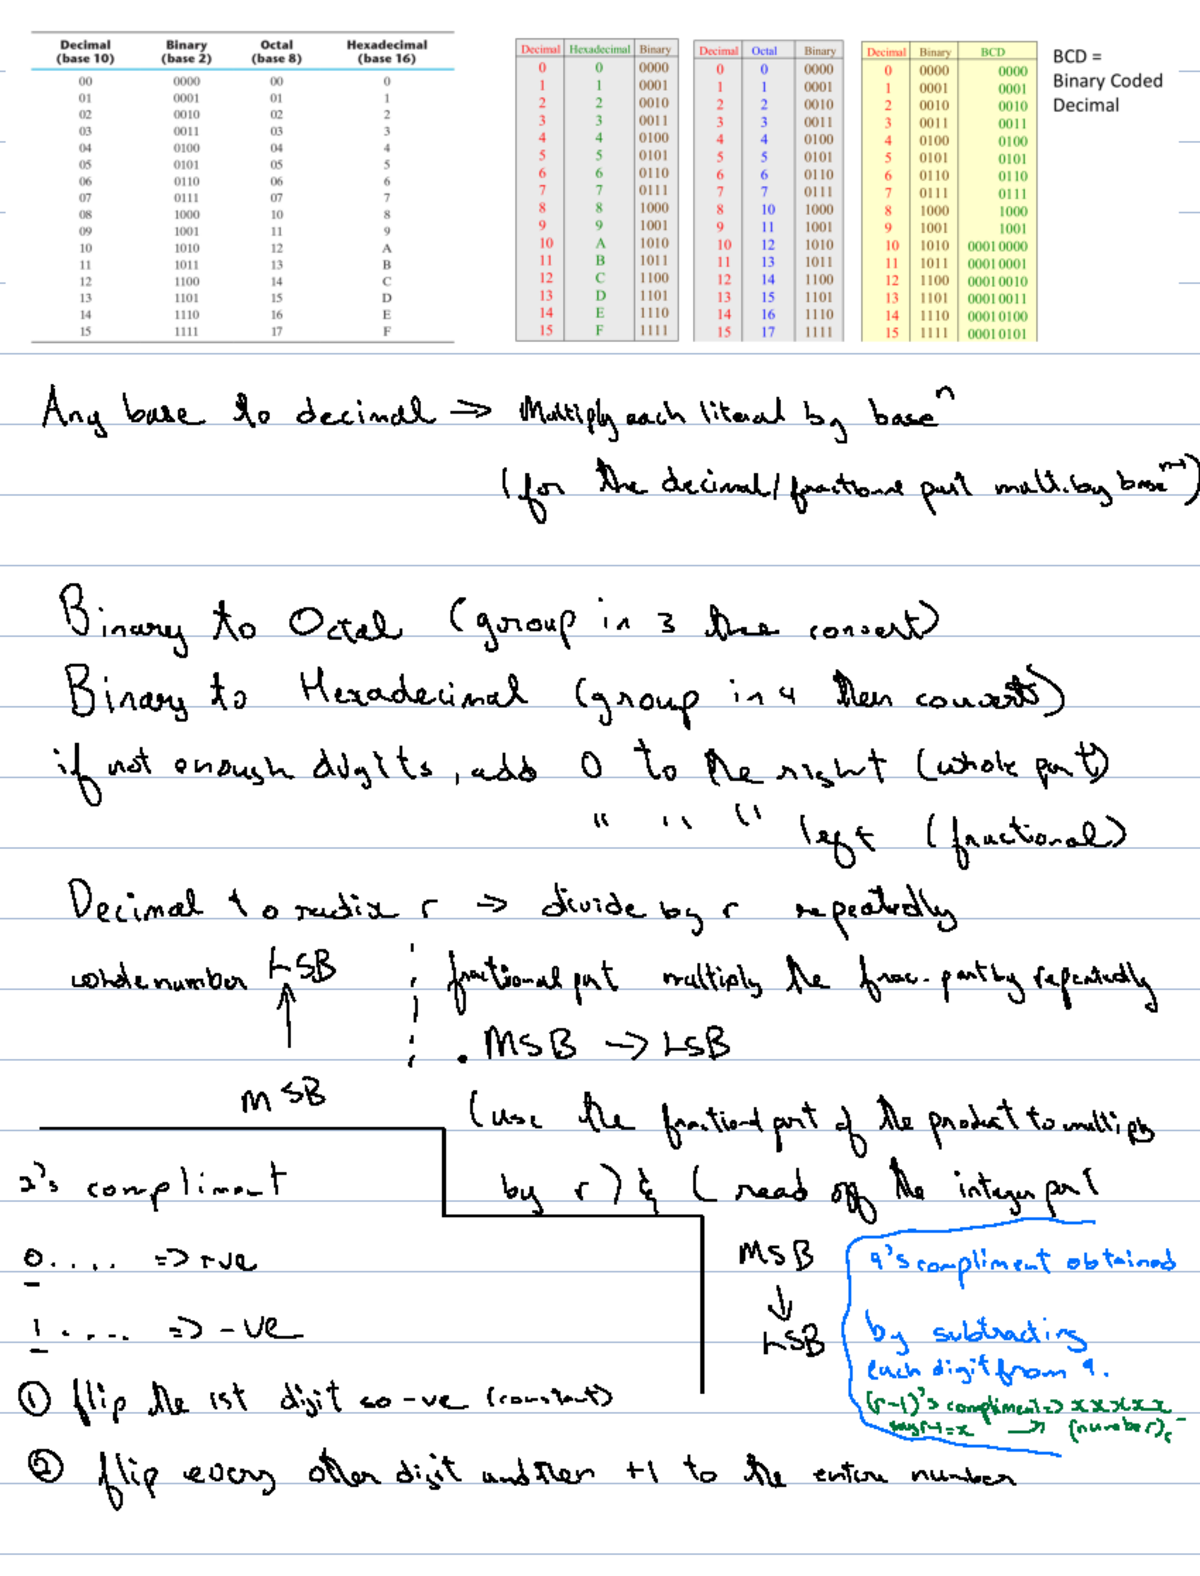 Decimal (base 10) Binary (base 2) Octal (base 8) Hexadecimal (base 16)
00 0000 00 0
01 0001 01 1
02 0010 02 2
03 0011 03 3
04 0100 04 4
05 0101 05 5
06 0110 06 6
07 0111 07 7
08 1000 10 8
09 1001 11 9
10 1010 12 A
11 1011 13 B
12 1100 14 C
13 1101 15 D
14 1110 16 E
15 1111 17 F
Decimal Hexadecimal Binary
0 0 0000
1 1 0001
2 2 0010
3 3 0011
4 4 0100
5 5 0101
6 6 0110
7 7 0111
8 8 1000
9 9 1001
10 A 1010
11 B 1011
12 C 1100
13 D 1101
14 E 1110
15 F 1111
Decimal Octal Binary
0 0 0000
1 1 0001
2 2 0010
3 3 0011
4 4 0100
5 5 0101
6 6 0110
7 7 0111
8 10 1000
9 11 1001
10 12 1010
11 13 1011
12 14 1100
13 15 1101
14 16 1110
15 17 1111
Decimal Binary BCD
0 0000 0000
1 0001 0001
2 0010 0010
3 0011 0011
4 0100 0100
5 0101 0101
6 0110 0110
7 0111 0111
8 1000 1000
9 1001 1001
10 1010 0001 0000
11 1011 0001 0001
12 1100 0001 0010
13 1101 0001 0011
14 1110 0001 0100
15 1111 0001 0101
BCD =
Binary Coded
Decimal
Any base to decimal => Multiply each literal by base^n
(for the decimal/fractional part multi. by base)
Binary to Octal (group in 3 then convert)
Binary to Hexadecimal (group in 4 then converts)
if not enough digits, add 0 to the right (whole part)
" " " left (fractional)
Decimal to radix r => divide by r repeatedly
whole number LSB
↑
MSB
fractional part multiply the frac. part by repeatedly
. MSB → LSB
(use the fractional part of the product to multiply
by r) & (read off the integer part
MSB
↓
LSB
2's compliment
0.... => +ve
1.... => -ve
① flip the 1st digit so -ve (constant)
② flip every other digit and then +1 to the entire number
9's compliment obtained
by subtracting
each digit from 9.
(r-1)'s compliment => xxxxxx -
say r-1=x → (number)r